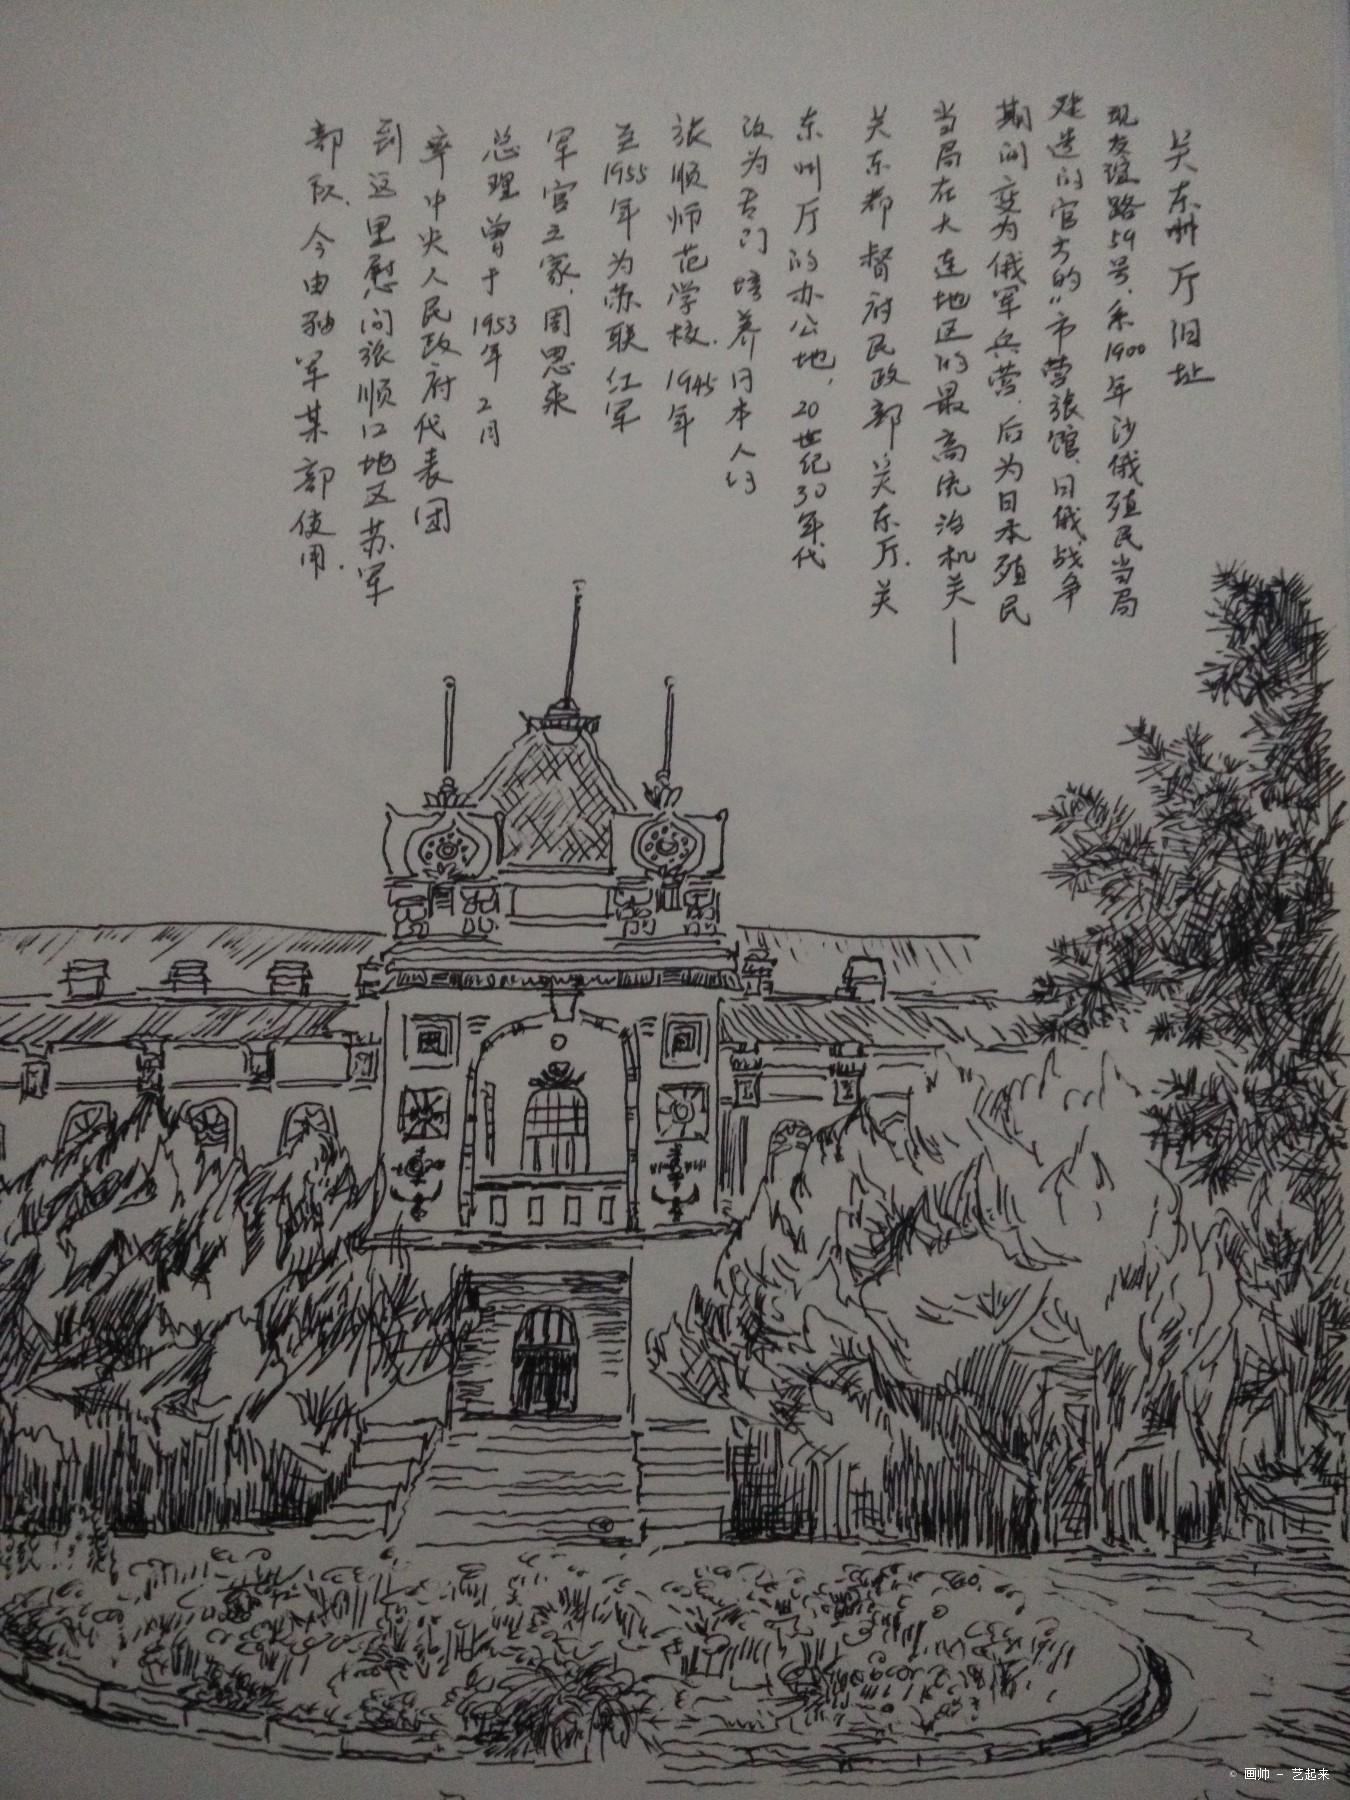 关东州厅旧址
现友谊路59号,系1900年沙俄殖民当局
建造的官方的"市营旅馆,日俄战争
期间变为俄军兵营,后为日本殖民
当局在大连地区的最高统治机关—
关东都督府民政部、关东厅.关
东州厅的办公地,20世纪30年代
改为专门培养日本人的
旅顺师范学校.1945年
至1955年为苏联红军
军官之家.周恩来
总理曾于1953年2月
率中央人民政府代表团
到这里慰问旅顺口地区苏军
部队.今由海军某部使用.
© 画帅 - 艺起来